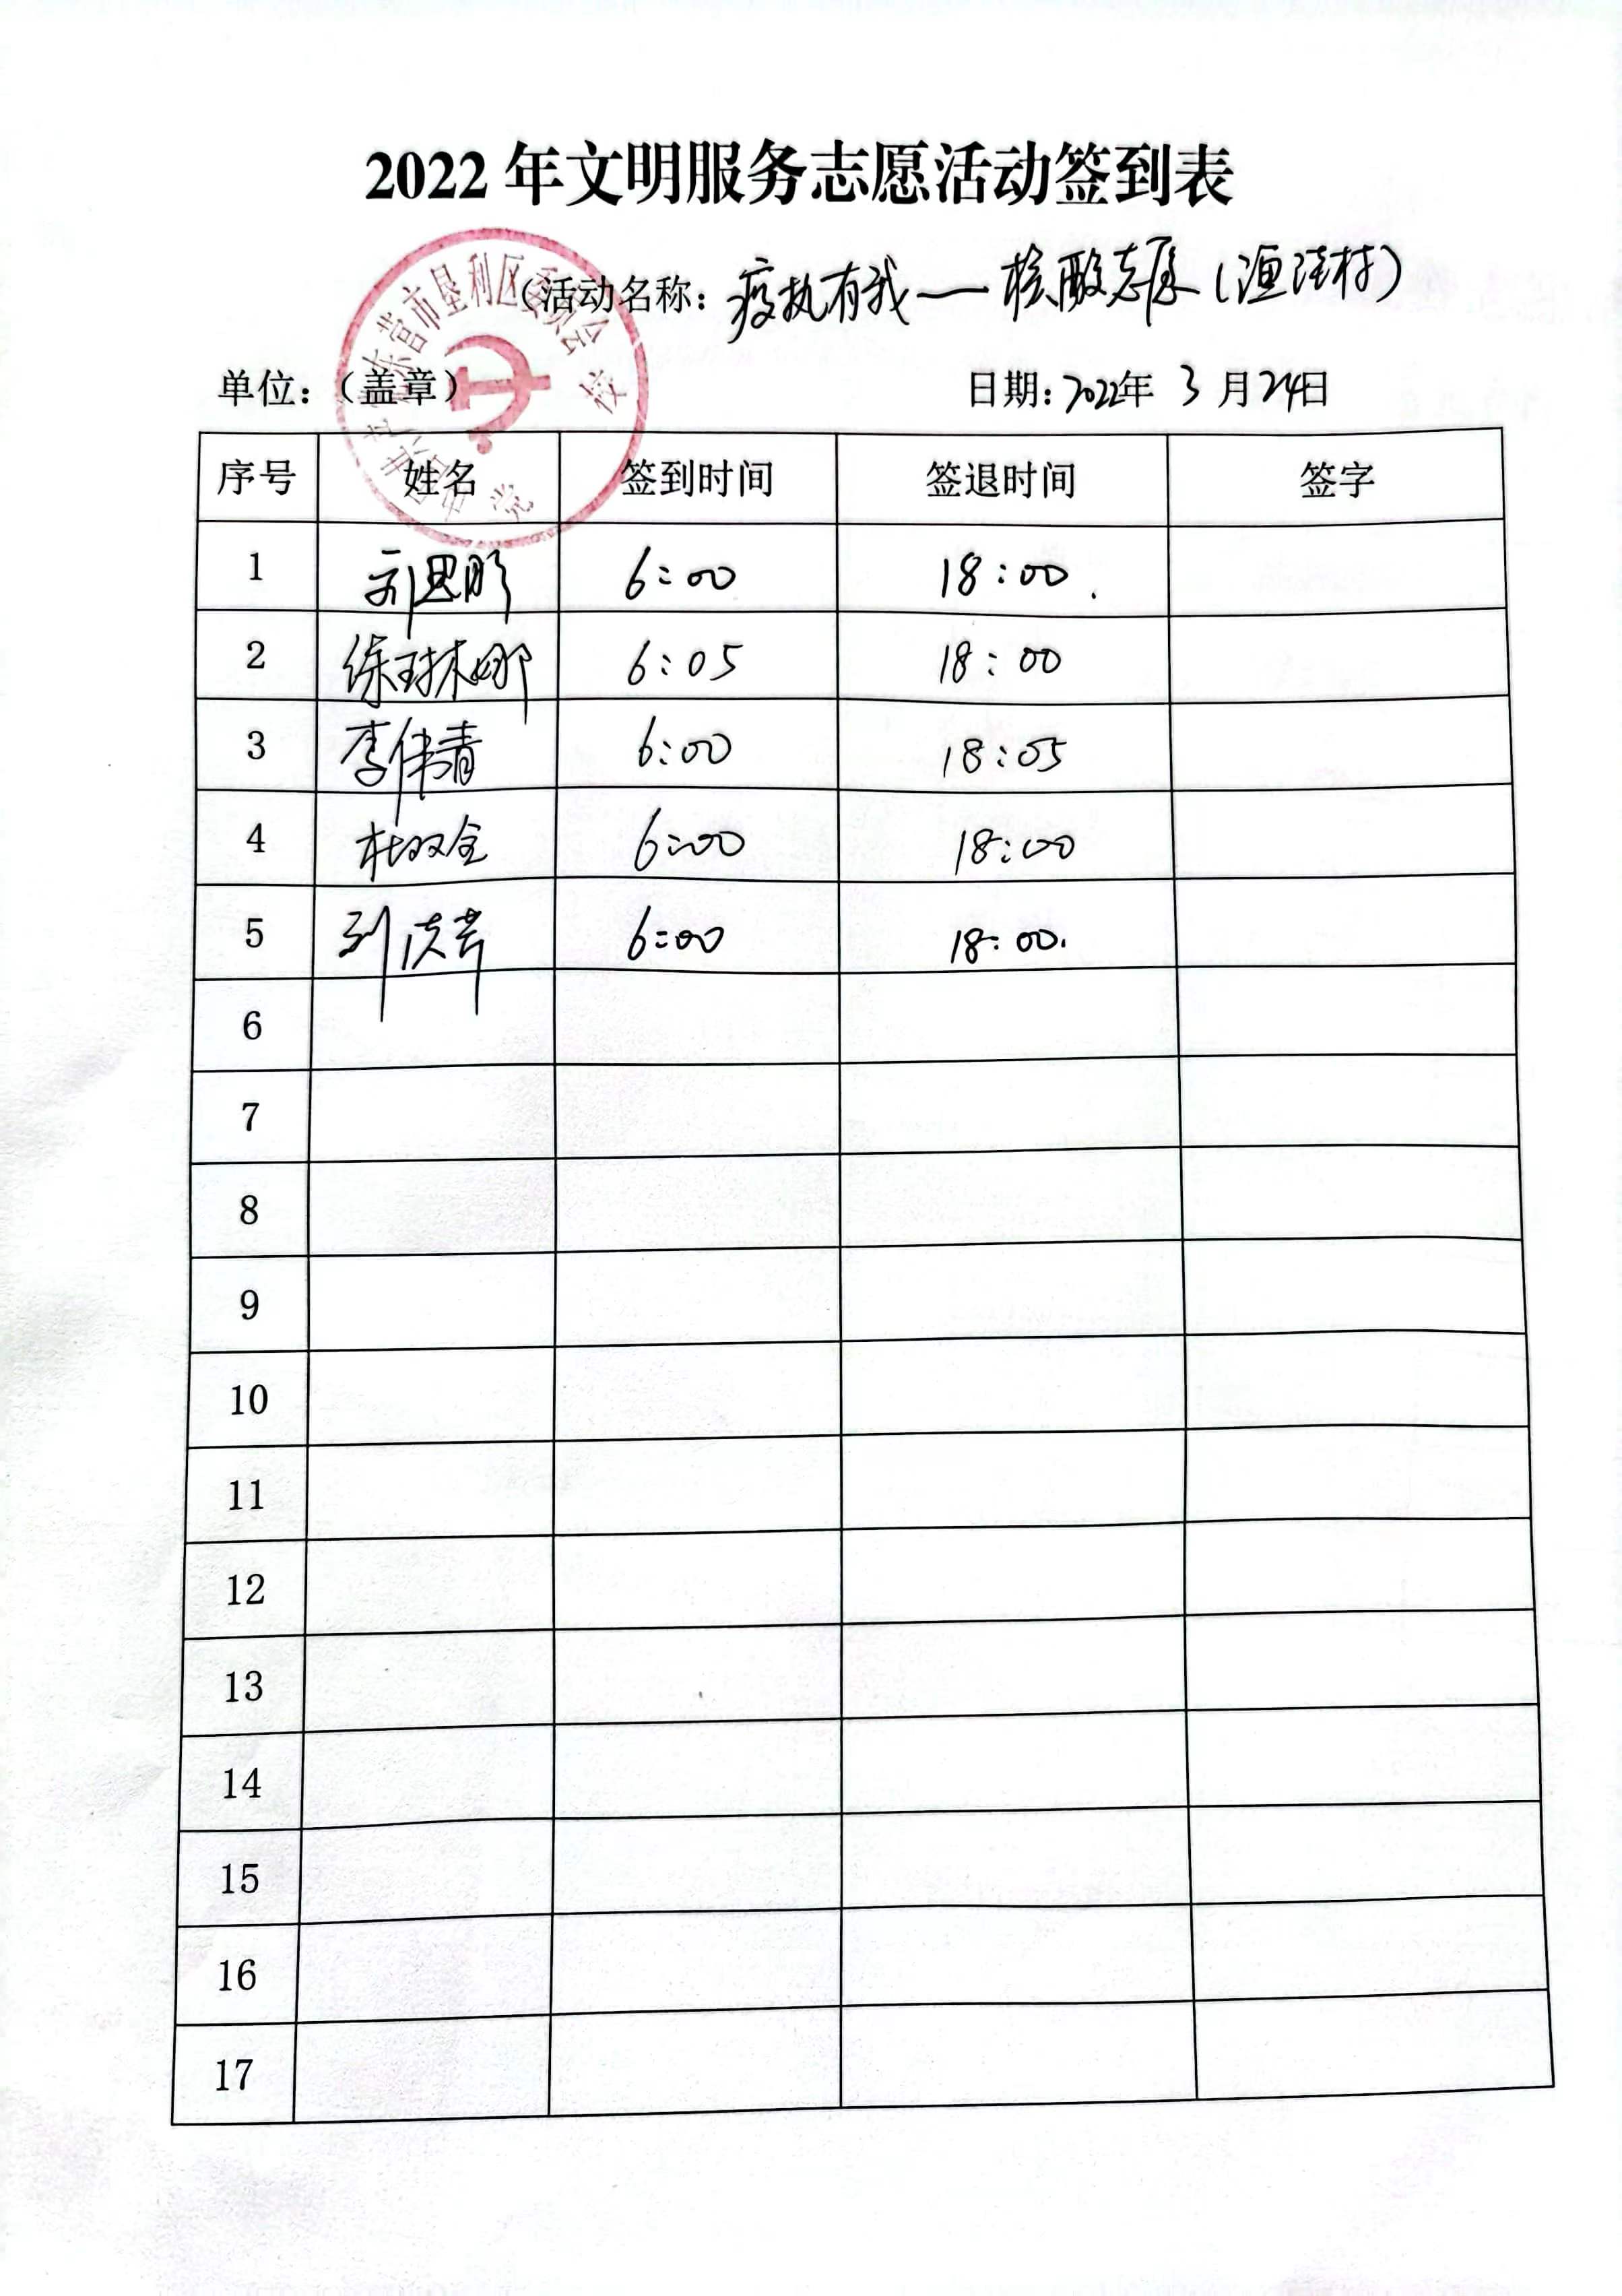 2022年文明服务志愿活动签到表
(活动名称：疫执有我——核酸志愿(渔洼村)
单位：（盖章） 日期：2022年 3 月24日
东营市垦利区委员会 党校
序号 姓名 签到时间 签退时间 签字
1 刘思鹏 6:00 18:00.
2 徐琳娜 6:05 18:00
3 李伟青 6:00 18:05
4 杜双全 6:00 18:00
5 刘 6:00 18:00.
6
7
8
9
10
11
12
13
14
15
16
17